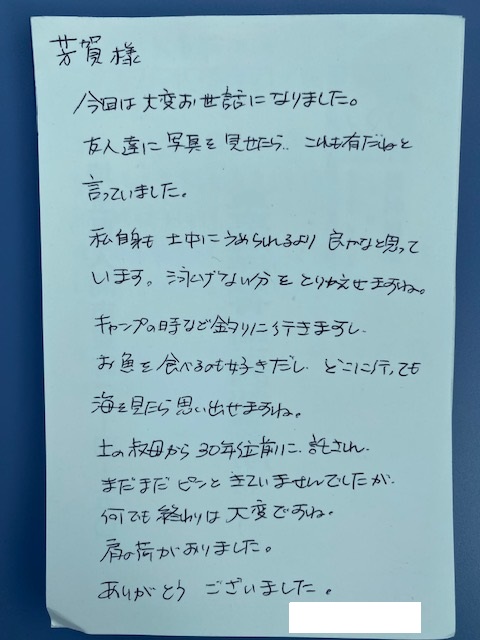 芳賀様
今回は大変お世話になりました。
友人達に写真を見せたら、これも有だねと
言っていました。
私自身も土中にうめられるより良かなと思って
います。泳げない分をとりかえせますね。
キャンプの時など釣りに行きますし、
お魚を食べるのも好きだし、どこに行っても
海を見たら思い出せますね。
土の叔母から30年位前に、託され、
まだまだピンときていませんでしたが、
何でも終わりは大変ですね。
肩の荷がおりました。
ありがとうございました。